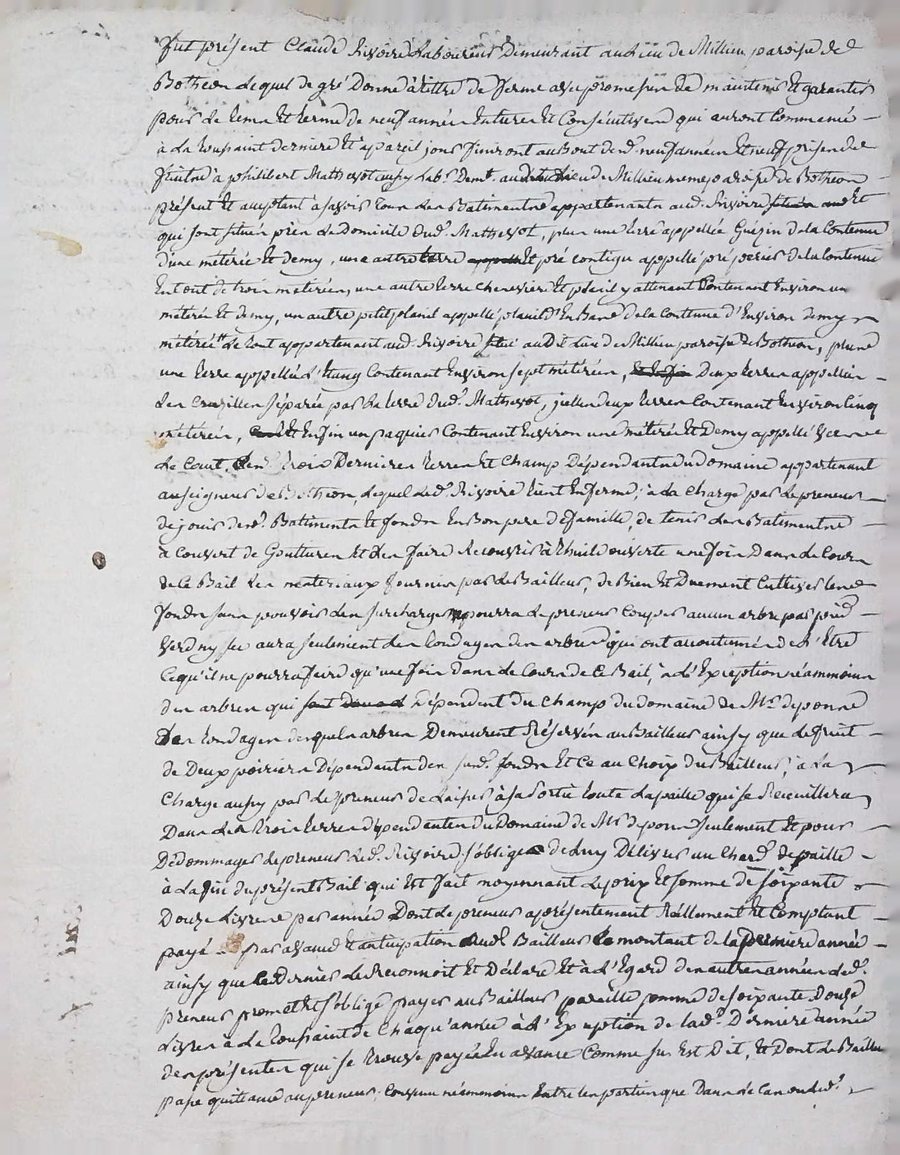 fut présent Claude Rivoire Laboureur Demeurant au Lieu de Millieu paroisse de
Botheon Lequel de gré Donne à tittre de ferme avec promesse de maintenir Et garantir
pour Le tems Et terme de neuf années Entieres Et Consécutives qui auront Commencé
à La toussaint derniere Et à pareil jour finiront au Bout desd. neuf années Et neuf prises de
fruits à philibert Mathevot aussy Lab.r Dem.t au Lieu de Millieu meme paroisse de Botheon
présent Et acceptant a savoir tous Les Batiments appartenants aud. Rivoire Et
qui sont situés près Le Domicile dud. Mathevot, plus une terre appellée Guizin de la Contenue
d'une méterée Et demy, une autre terre Et pré contigu appellé pré de la Contenue
En tout de trois meterées, une autre terre cheneviere Et y attenant Contenant Environ un
méterée Et demy, un autre petit appellé d'En Bas de la Contenue d'Environ demy
méterée Le tout appartenant aud. Rivoire situé audit Lieu de Millieu paroisse de Botheon, plus
une terre appellée L'Etang Contenant Environ sept méterées, Deux terres appellées
Les séparées par La terre dud. Mathevot, jcelles deux terres Contenant Environ Cinq
méterées, Et Enfin un paquier Contenant Environ une méterée Et Demy appellé
Le trois Dernieres terres Et Champ Dépendants du Domaine appartenant
au seigneur de Botheon, Lequel Led. Rivoire tient En ferme; à La Charge par Le preneur
de jouir desd. Batiments Et fonds En Bon pere de famille, de tenir Les Batiments
à Couvert de Gouttieres Et Les faire Recouvrir à thuile ouverte une fois Dans Le Cours
de Ce Bail Les matereaux fournis par Le Bailleur, de Bien Et Duement Cultiver Les
fonds sans pouvoir Les surcharger ne pourra Le preneur Couper aucun arbre par pied
Verd ny sec aura seulement Les tondages des arbres qui ont accoutumé de L'Etre
Ce qu'il ne pourra faire qu'une fois dans Le Cours de Ce Bail, à L'Exception néammoins
des arbres qui Dépendent du Champ du domaine de Mr
Les tondages desquels arbres Demeurent Réservés au Bailleur ainsy que Le fruit
de Deux poiriers Dépendants des susd. fonds Et Ce au Choix du Bailleur; à La
Charge aussy par Le preneur de Laisser à sa sortie toute La paille qui se Receuillera
Dans Les trois terres dépendantes du Domaine de Mr seulement Et pour
Dédommager Le preneur Led. Rivoire s'oblige de Luy Délivrer un Char de paille
à La fin du présent Bail qui Est fait moyennant Le prix Et somme de soixante
Douze Livres par année Dont Le preneur a présentement Réellement Et Comptant
payé par avance Et anticipation aud. Bailleur Le montant de la premiere année
ainsy que Ce Dernier Le Reconnoit Et Déclare Et à L'Egard des autres années Led.
preneur promet Et s'oblige payer au Bailleur pareille somme de soixante Douze
Livres à La toussaint de Chaqu'année à L'Exception de Lad. Derniere année
des présentes qui se trouve payée En avance Comme sus Est Dit, Et Dont Le Bailleur
passe quittance au preneur; Convenu néammoins Entre Les parties que Dans Le Cas ou Led.